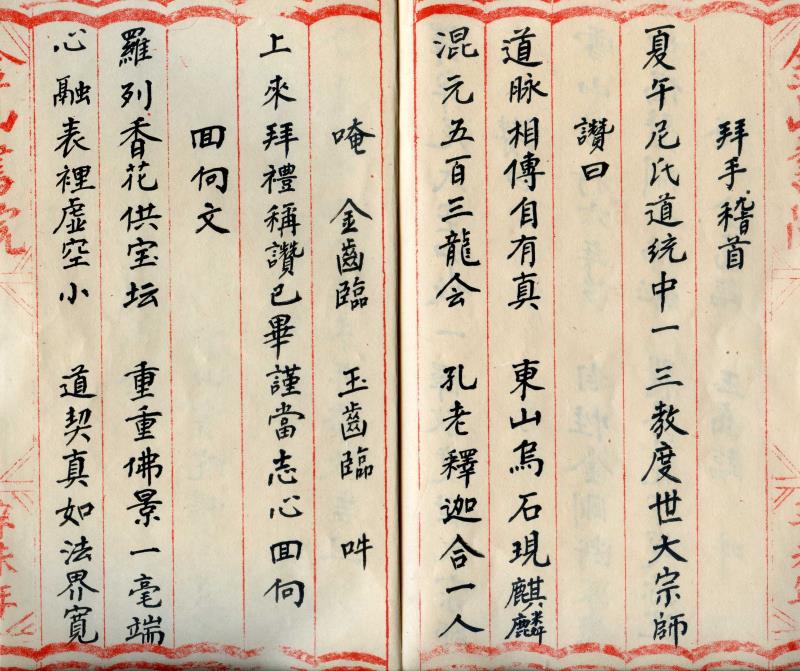 拜手稽首
夏午尼氏道统中一 三教度世大宗師
讚曰
道脉相傳自有真 東山烏石現麒麟
混元五百三龍会 孔老釋迦合一人
唵 金齒臨 玉齒臨 吽
上來拜禮稱讚已畢謹當志心囬向
囬向文
羅列香花供宝坛 重重佛景一毫端
心融表裡虛空小 道契真如法界寬